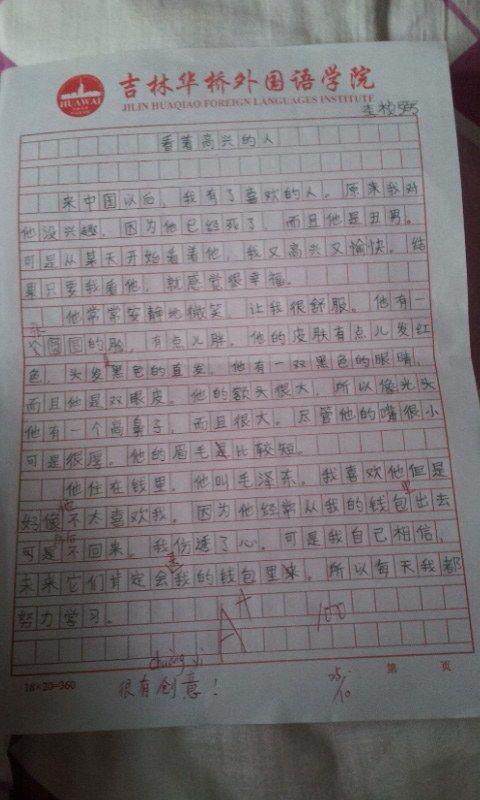 吉林华桥外国语学院
HUAWAI
JILIN HUAQIAO FOREIGN LANGUAGES INSTITUTE
看着高兴的人
来中国以后，我有了喜欢的人。原来我对
他没兴趣。因为他已经死了，而且他是丑男。
可是从某天开始看着他，我又高兴又愉快。结
果只要我看他，就感觉很幸福。
他常常安静地微笑，让我很舒服。他有一
张
个圆圆的脸，有点儿胖。他的皮肤有点儿发红
色，头发黑色的直发。他有一双黑色的眼睛，
而且他是双眼皮。他的额头很大，所以像光头
他有一个高鼻子，而且很大。尽管他的嘴很小
可是很厚。他的眉毛是比较短。
他住在钱里。他叫毛泽东。我喜欢他但是
他
好像不太喜欢我。因为他经常从我的钱包出去
里
可是不回来。我伤透了心。可是我自己相信，
来
未来它们肯定会我的钱包里来。所以每天我都
努力学习。
A+
100
chuàng yì
很有创意！
25/10
18×20=360
第 页